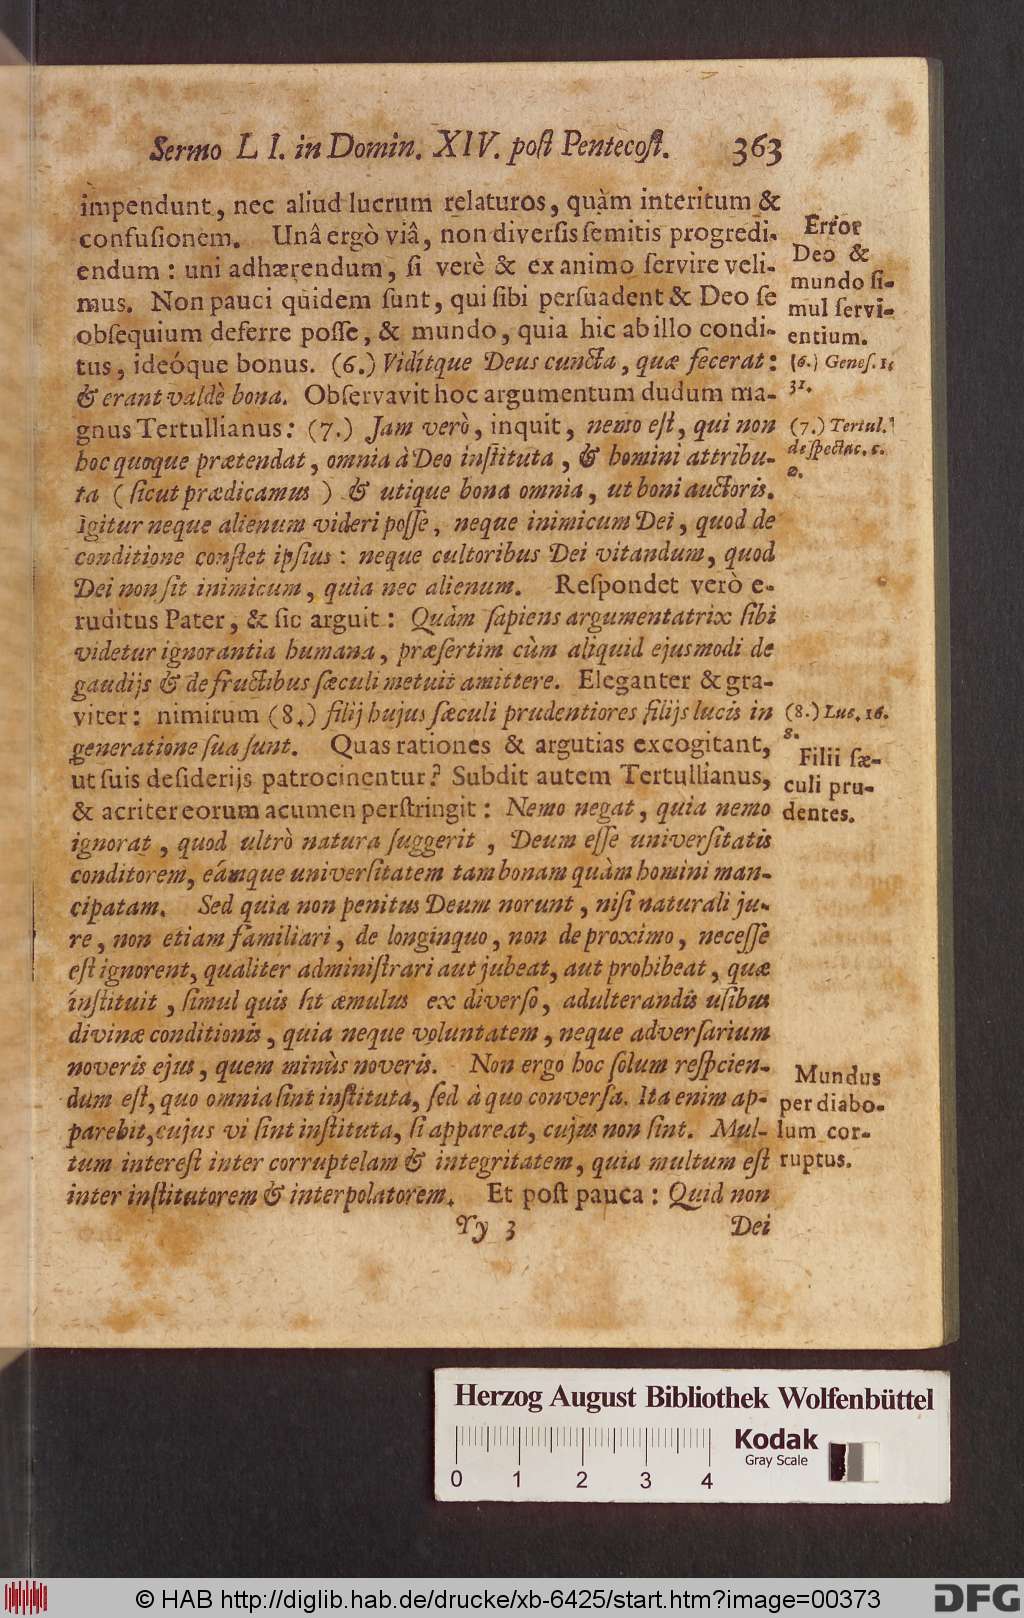 Sermo LI. in Domin. XIV. poſt Pentecoſt. 363
impendunt, nec aliud lucrum relaturos, quàm interitum &
confuſionem. Unâ ergò viâ, non diverſis ſemitis progredi-
endum : uni adhærendum, ſi verè & ex animo ſervire veli-
mus. Non pauci quidem ſunt, qui ſibi perſuadent & Deo ſe
obſequium deferre poſſe, & mundo, quia hic ab illo condi-
tus, ideóque bonus. (6.) Viditque Deus cuncta, quæ fecerat :
& erant valdè bona. Obſervavit hoc argumentum dudum ma-
gnus Tertullianus: (7.) Jam verò, inquit, nemo eſt, qui non
hoc quoque prætendat, omnia à Deo inſtituta, & homini attribu-
ta (ſicut prædicamus) & utique bona omnia, ut boni auctoris.
Igitur neque alienum videri poſſe, neque inimicum Dei, quod de
conditione conſtet ipſius : neque cultoribus Dei vitandum, quod
Dei non ſit inimicum, quia nec alienum. Reſpondet verò e-
ruditus Pater, & ſic arguit : Quàm ſapiens argumentatrix ſibi
videtur ignorantia humana, præſertim cùm aliquid ejusmodi de
gaudijs & de fructibus ſæculi metuit amittere. Eleganter & gra-
viter : nimirum (8.) filij hujus ſæculi prudentiores filijs lucis in
generatione ſua ſunt. Quas rationes & argutias excogitant,
ut ſuis deſiderijs patrocinentur? Subdit autem Tertullianus,
& acriter eorum acumen perſtringit : Nemo negat, quia nemo
ignorat, quod ultrò natura ſuggerit, Deum eſſe univerſitatis
conditorem, eámque univerſitatem tam bonam quàm homini man-
cipatam. Sed quia non penitus Deum norunt, niſi naturali ju-
re, non etiam familiari, de longinquo, non de proximo, neceſſe
eſt ignorent, qualiter adminiſtrari aut jubeat, aut prohibeat, quæ
inſtituit, ſimul quis ſit æmulus ex diverſo, adulterandis uſibus
divinæ conditionis, quia neque voluntatem, neque adverſarium
noveris ejus, quem minùs noveris. Non ergo hoc ſolum reſpcien-
dum eſt, quo omnia ſint inſtituta, ſed à quo converſa. Ita enim ap-
parebit, cujus vi ſint inſtituta, ſi appareat, cujus non ſint. Mul-
tum intereſt inter corruptelam & integritatem, quia multum eſt
inter inſtitutorem & interpolatorem. Et poſt pauca : Quid non
Yy 3 Dei
Error
Deo &
mundo ſi-
mul ſervi-
entium.
(6.) Geneſ. 1.
31.
(7.) Tertul.
de ſpectac. c.
2.
(8.) Luc. 16.
8.
Filii ſæ-
culi pru-
dentes.
Mundus
per diabo-
lum cor-
ruptus.
Herzog August Bibliothek Wolfenbüttel
Kodak
Gray Scale
0 1 2 3 4
© HAB http://diglib.hab.de/drucke/xb-6425/start.htm?image=00373
DFG